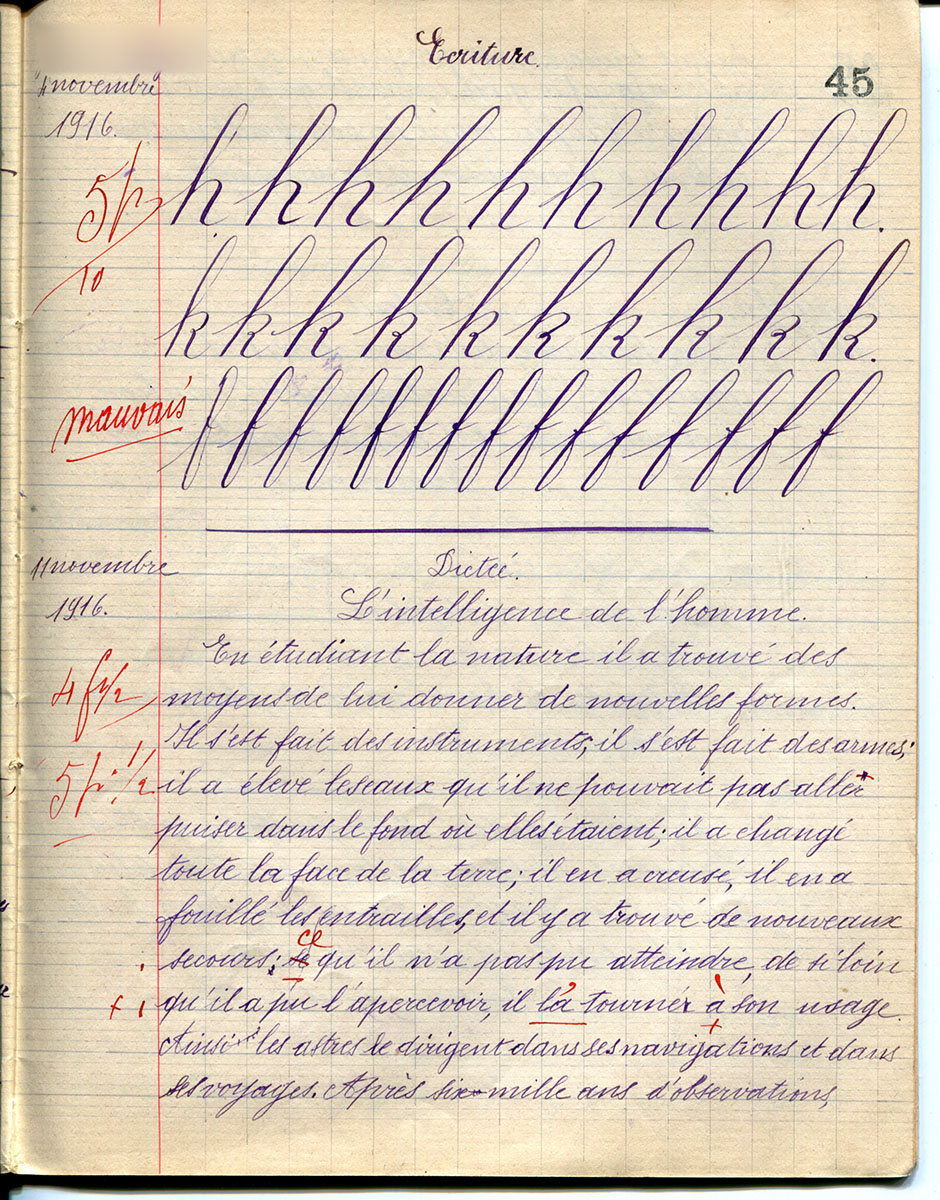 Ecriture.
45
4 novembre
1916.
h h h h h h h h h h.
5 p
10
k k k k k k k k k k.
mauvais
f f f f f f f f f f f f f
11 novembre
Dictée.
1916.
L'intelligence de l'homme.
En étudiant la nature il a trouvé des
4 f 1/2
moyens de lui donner de nouvelles formes.
Il s'est fait des instruments; il s'est fait des armes;
5 p. 1/2
il a élevé les eaux qu'il ne pouvait pas aller
puiser dans le fond où elles étaient; il a changé
toute la face de la terre; il en a creusé, il en a
fouillé les entrailles, et il y a trouvé de nouveaux
ce
secours; se qu'il n'a pas pu atteindre, de si loin
qu'il a pu l'apercevoir, il la tourner à son usage.
Ainsi les astres le dirigent dans ses navigations et dans
ses voyages. Après six-mille ans d'observations,